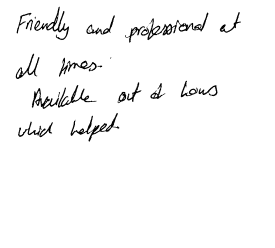 Friendly and professional at
all times.
Available out of hours
which helped.